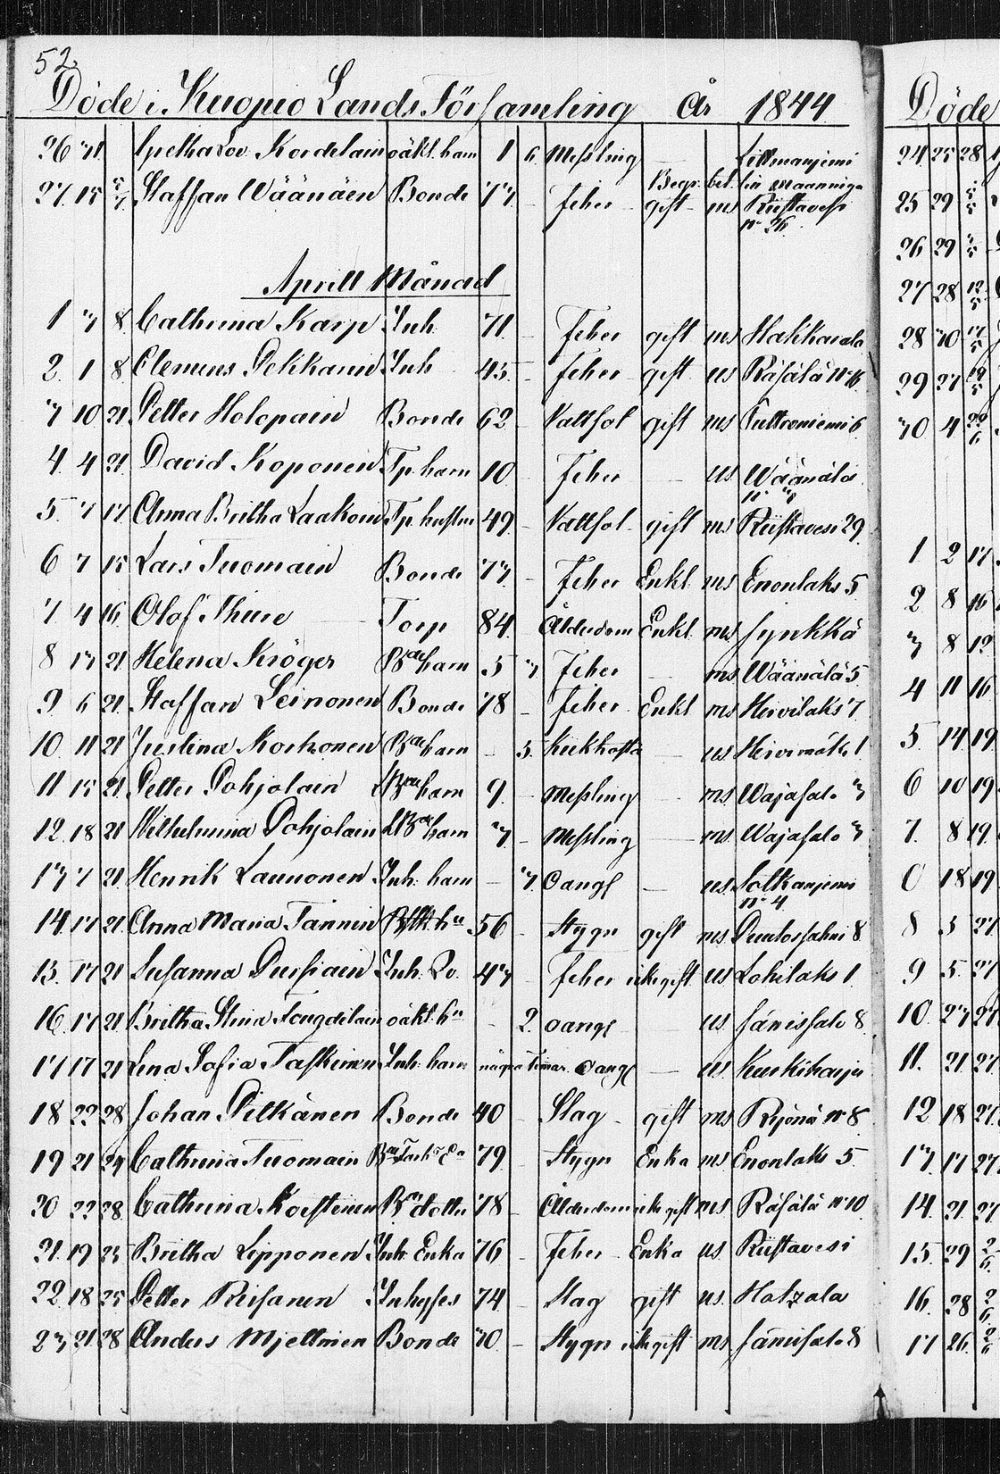 52.
Döde i Kuopio Lands Församling År 1844
26 31 Gretha Lov. Kordelain oäkt. barn 1 6 Meßling
27 15 Staffan Wäänäen Bonde 73 feber gift ms Riistavesi
Aprill Månad
1 3 8 Cathrina Karp Inh. 71 feber gift ms Hakkarala
2. 1 8 Clemens Pekkanin Inh 45 feber gift us Räsälä No 16
3 10 21 Petter Holopain Bonde 62 Vattsot gift ms 6
4. 4 21 David Koponen Tp barn 10 Feber us Wäänälä
5. 3 17 Anna Britha Laakoin Tp hustru 49 Vattsot gift ms Riistavesi 29
6 7 15 Lars Tuomain Bonde 73 Feber Enkl ms Enonlaks 5
7 4 16 Olof Thure Torp 84 Ålderdom Enkl ms Jynkkä
8 13 21 Helena Kröger Bde barn 5 3 Feber ms Wäänälä 5
9. 6 21 Staffan Leinonen Bonde 78 feber Enkl ms Hirvilaks 7
10 11 21 Justina Korhonen Bde barn 5 Kikhosta us Hirvimäki 1
11 15 21 Petter Pohjolain barn 9. Meßling ms Wajasalo 3
12 18 21 Wilhelmina Pohjolain barn 3 Meßling ms Wajasalo 3
13 7 21 Henrik Launonen Inh: barn 3 oangf us Lolkanjemi No 4
14 17 21 Anna Maria Tannin hu 56 Stygn gift ms 8
15. 17 21 Susanna Pursiain Inh. 43 feber ickegift us Lohilaks 1
16. 17 21 Britha Stina oäkt. bn 2. oangf us Jänissalo 8
17 17 21 Lena Sofia Taskinen Inh: barn några timar. oangf us Kurkiharju
18 22 28 Johan Pitkänen Bonde 40 Slag gift ms No 8
19 21 24 Cathrina Tuomain 79 Stygn Enka ms Enonlaks 5
20 22 28 Cathrina Korstinen Bde dotter 78 Ålderdom ickegift ms Räsälä No 10
21. 19 25 Britha Lipponen Inh Enka 76 Feber Enka us Riistavesi
22. 18 25 Petter Riisanen Inhyses 74 Slag gift us. Hatzala
23 21 28 Anders Mjettinen Bonde 30 Stygn ickegift ms Jänissalo 8
Döde
24 25 28
25 29
26 29
27 28
28 30
29 27
30 4
1 2 17
2 8 16
3 8 19
4 11 16
5 14 19
6 10 19
7. 8 19
0 18 19
8 5 27
9 5 27
10 23 27
11. 21 27
12 18 27
13 17 27
14 21 27
15 29
16 28
17 26